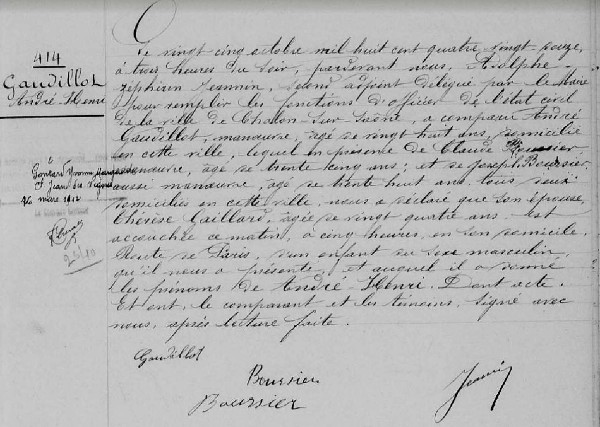 414
Gaudillot
André Henri
Le vingt cinq octobre mil huit cent quatre vingt douze,
à trois heures du soir, pardevant nous, Adolphe
Zéphirin Jeannin, second adjoint délégué par le Maire
pour remplir les fonctions d'officier de l'état civil
de la ville de Chalon sur Saône, a comparu André
Gaudillot, manœuvre, âgé de vingt huit ans, domicilié
en cette ville, lequel en présence de Claude Boussier
manœuvre, âgé de trente cinq ans; et de Joseph Boussier
aussi manœuvre, âgé de trente huit ans, tous deux
domiciliés en cette ville, nous a déclaré que son épouse,
Thérèse Gaillard, âgée de vingt quatre ans est
accouchée ce matin, à cinq heures, en son domicile,
Route de Paris, d'un enfant du sexe masculin,
qu'il nous a présenté, et auquel il a donné
les prénoms de André Henri. Dont acte.
Et ont, le comparant et les témoins, signé avec
nous, après lecture faite.
à
St Jean des Vignes
mars 1912
Gaudillot
Boussier
Boussier